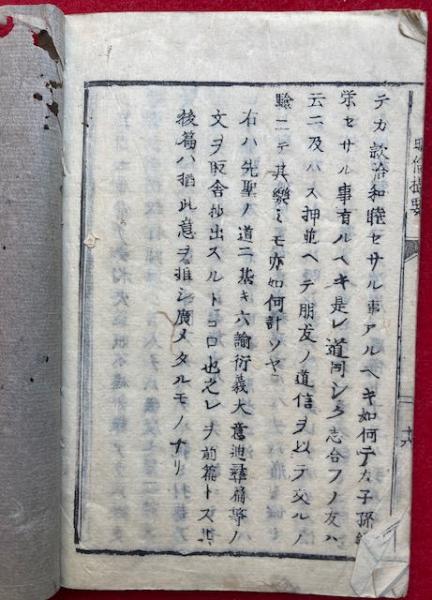 テカ款洽和睦セサル事アルヘキ如何テカ子孫繁
栄セサル事有ルヘキ是レ道同シク志合フノ友ハ
云ニ及ハス押並ヘテ朋友ノ道信ヲ以テ交ルノ
驗ニテ其樂ミモ亦如何計ソヤ
右ハ先聖ノ道ニ基キ六諭衍義大意迪彛篇等ノ
文ヲ取舍抄出スルトコロ也之レヲ前篇トス其
後篇ハ猶此意ヲ推シ廣メタルモノナリ